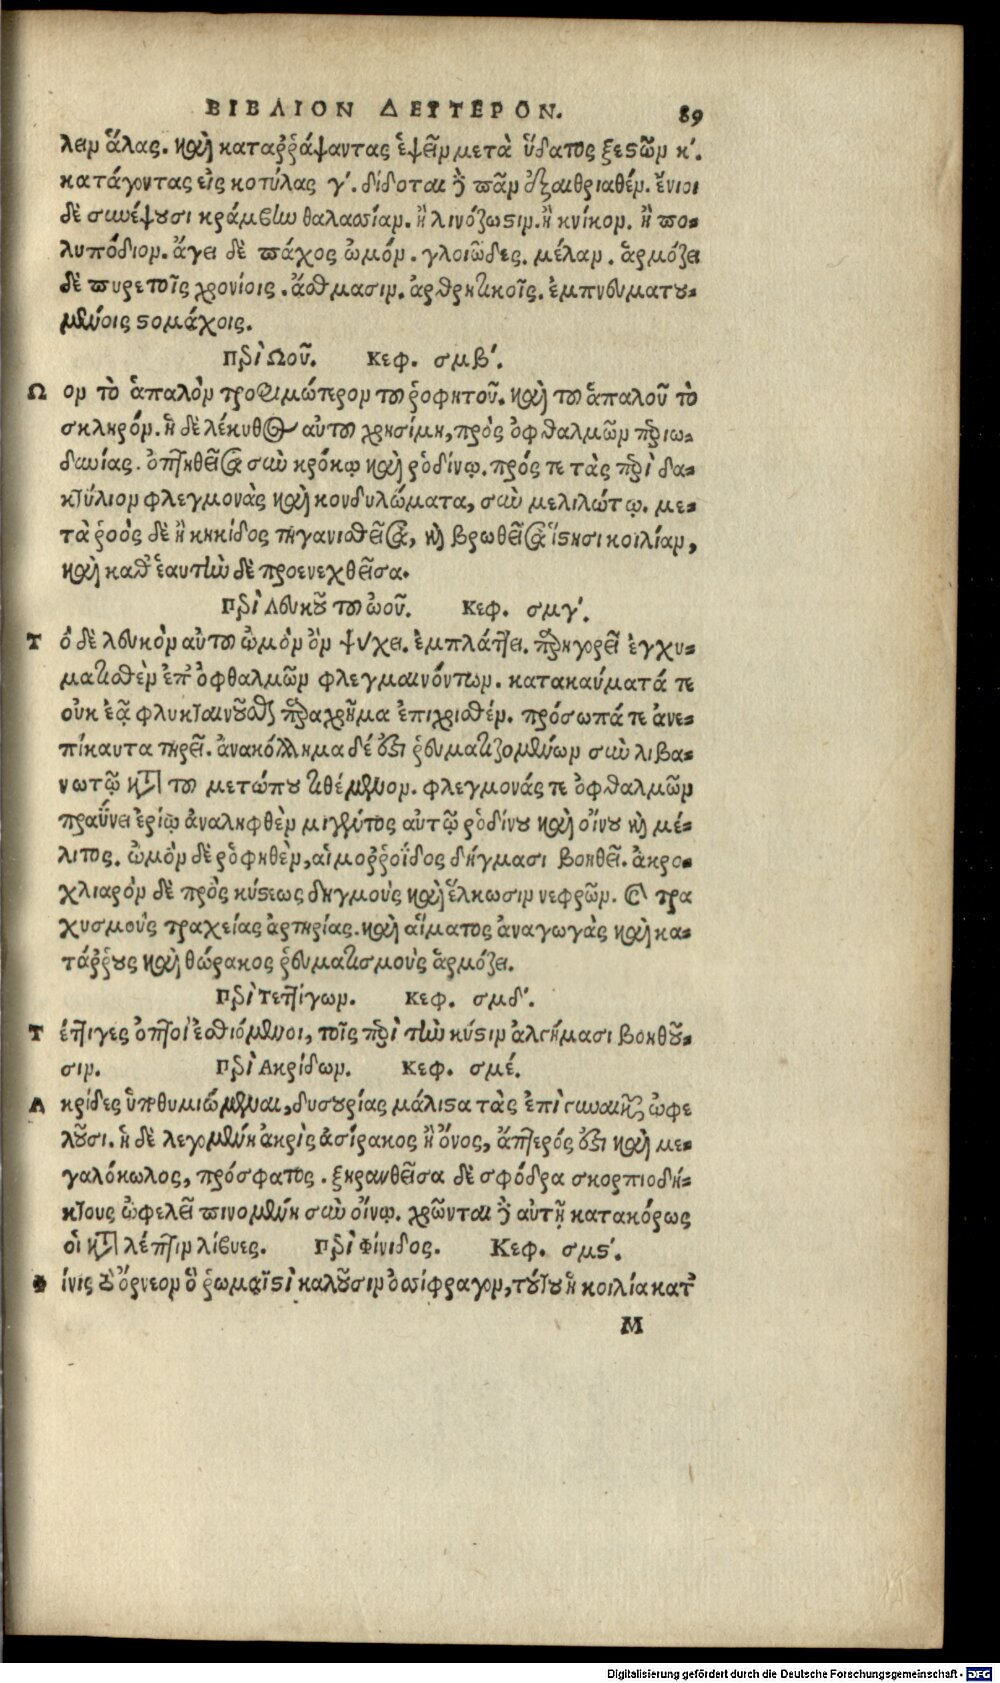 ΒΙΒΛΙΟΝ ΔΕΥΤΕΡΟΝ. 89
λειν ἅλας. καὶ καταῤῥάψαντας ἑψεῖν μετὰ ὕδατος ξεστῶν κ´.
κατάγοντας εἰς κοτύλας γ´. δίδοται δὲ πᾶν ἐξαιθριασθέν. ἔνιοι
δὲ συνέψουσι κράμβην θαλασσίαν. ἢ λινόζωστιν. ἢ κνίκον. ἢ πο-
λυπόδιον. ἄγει δὲ πάχος ὠμόν. γλοιῶδες. μέλαν. ἁρμόζει
δὲ πυρετοῖς χρονίοις. ἄσθμασιν. ἀρθριτικοῖς. ἐμπνευματου-
μένοις στομάχοις.
Περὶ Ωοῦ. Κεφ. σμβ´.
Ωὸν τὸ ἁπαλὸν τροφιμώτερον τοῦ ῥοφητοῦ. καὶ τοῦ ἁπαλοῦ τὸ
σκληρόν. ἡ δὲ λέκυθος αὐτοῦ χρησίμη, πρὸς ὀφθαλμῶν περιω-
δυνίας. ὀπτηθεῖσα σὺν κρόκῳ καὶ ῥοδίνῳ. πρός τε τὰς περὶ δα-
κτύλιον φλεγμονὰς καὶ κονδυλώματα, σὺν μελιλώτῳ. με-
τὰ ῥοὸς δὲ ἢ κηκίδος τηγανισθεῖσα, καὶ βρωθεῖσα ἵστησι κοιλίαν,
καὶ καθ' ἑαυτὴν δὲ προσενεχθεῖσα.
Περὶ Λευκοῦ τοῦ ὠοῦ. Κεφ. σμγ´.
Τὸ δὲ λευκὸν αὐτοῦ ὠμὸν ὂν ψύχει. ἐμπλάττει. παρηγορεῖ ἐγχυ-
ματισθὲν ἐπ' ὀφθαλμῶν φλεγμαινόντων. κατακαύματά τε
οὐκ ἐᾷ φλυκταινοῦσθαι παραχρῆμα ἐπιχρισθέν. πρόσωπά τε ἀνε-
πίκαυτα τηρεῖ. ἀνακόλλημα δέ ἐστι ῥευματιζομένων σὺν λιβα-
νωτῷ κατὰ τοῦ μετώπου τιθέμενον. φλεγμονάς τε ὀφθαλμῶν
πραΰνει ἐρίῳ ἀναληφθὲν μιγέντος αὐτῷ ῥοδίνου καὶ οἴνου καὶ μέ-
λιτος. ὠμὸν δὲ ῥοφηθὲν, αἱμοῤῥοΐδος δήγμασι βοηθεῖ. ἀκρο-
χλιαρὸν δὲ πρὸς κύστεως δηγμοὺς καὶ ἕλκωσιν νεφρῶν. καὶ τρα
χυσμοὺς τραχείας ἀρτηρίας. καὶ αἵματος ἀναγωγὰς καὶ κα-
τάῤῥους καὶ θώρακος ῥευματισμοὺς ἁρμόζει.
Περὶ Τεττίγων. Κεφ. σμδ´.
Τέττιγες ὀπτοὶ ἐσθιόμενοι, τοῖς περὶ τὴν κύστιν ἀλγήμασι βοηθοῦ-
σιν. Περὶ Ακρίδων. Κεφ. σμέ.
Ακρίδες ὑποθυμιώμεναι, δυσουρίας μάλιστα τὰς ἐπὶ γυναικῶν ὠφε
λοῦσι. ἡ δὲ λεγομένη ἀκρὶς ἀσίρακος ἢ ὄνος, ἄπτερός ἐστι καὶ με-
γαλόκωλος, πρόσφατος. ξηρανθεῖσα δὲ σφόδρα σκορπιοδή-
κτους ὠφελεῖ πινομένη σὺν οἴνῳ. χρῶνται δὲ αὐτῇ κατακόρως
οἱ κατὰ λέπτιν λίβυες. Περὶ Φίνιδος. Κεφ. σμς´.
Φίνις τὸ ὄρνεον ὃ ῥωμαϊστὶ καλοῦσιν ὀσσίφραγον, τούτου ἡ κοιλία κατ'
M
Digitalisierung gefördert durch die Deutsche Forschungsgemeinschaft - DFG